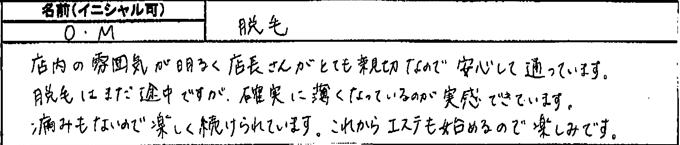 名前(イニシャル可)
O.M
脱毛
店内の雰囲気が明るく店長さんがとても親切なので安心して通っています。
脱毛はまだ途中ですが、確実に薄くなっているのが実感できています。
痛みもないので楽しく続けられています。これからエステも始めるので楽しみです。